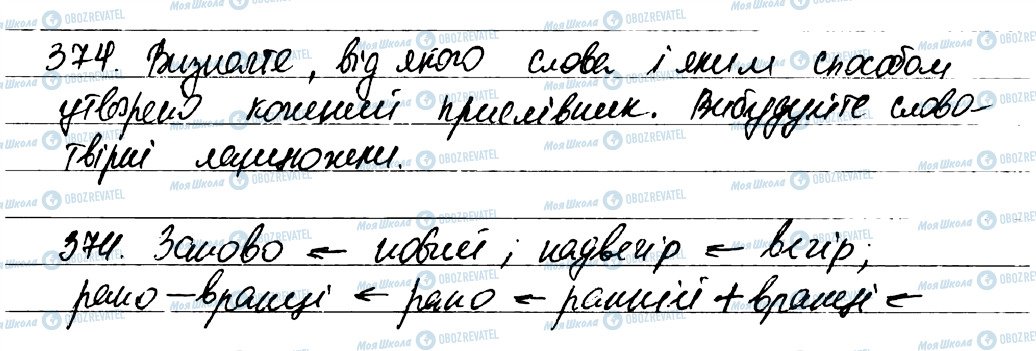 374. Визначте, від якого слова і яким способом
утворено кожний прислівник. Вибудуйте слово-
твірні ланцюжки.
374. Заново ← новий; надвечір ← вечір;
рано-вранці ← рано ← ранній + вранці ←